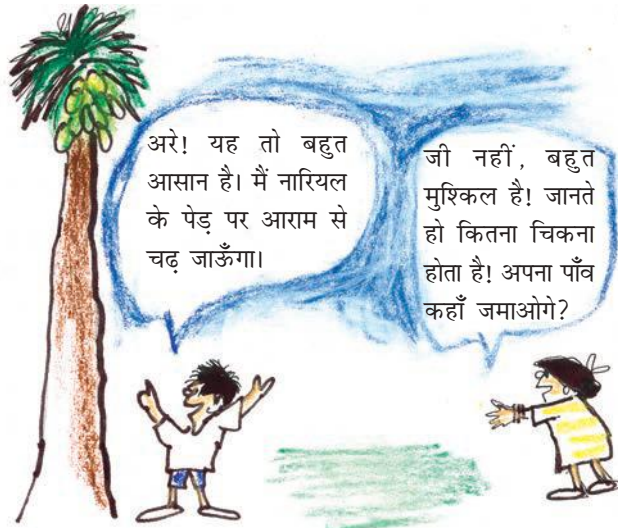 अरे! यह तो बहुत
आसान है। मैं नारियल
के पेड़ पर आराम से
चढ़ जाऊँगा।
जी नहीं, बहुत
मुश्किल है! जानते
हो कितना चिकना
होता है! अपना पाँव
कहाँ जमाओगे?